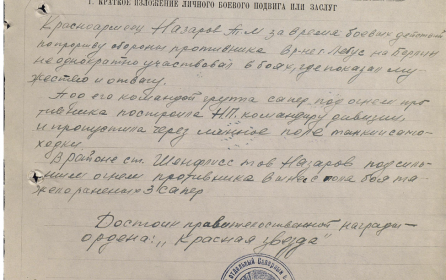 1. КРАТКОЕ ИЗЛОЖЕНИЕ ЛИЧНОГО БОЕВОГО ПОДВИГА ИЛИ ЗАСЛУГ
Красноармеец Назаров А.М за время боевых действий
по прорыву обороны противника в р-не г. Лебус на Берлин
неоднократно участвовал в боях, где показал му
жество и отвагу.
Под его командой группа сапер под огнем про
тивника построила НП. командиру дивизии,
и пропустила через минное поле танки и само
ходки.
В районе ст. тов Назаров под силь
ным огнем противника вынес с поля боя тя
жело раненых 3х сапер
Достоин правительственной награды-
ордена: "Красная звезда"